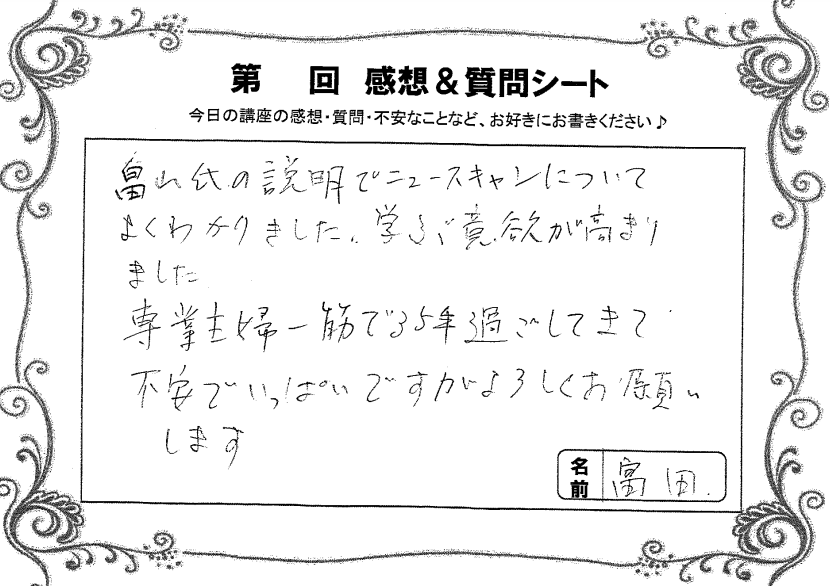 第　回 感想&質問シート
今日の講座の感想・質問・不安なことなど、お好きにお書きください♪
畠山氏の説明でニュースキャンについて
よくわかりました。学ぶ意欲が高まり
ました
専業主婦一筋で35年過ごしてきて
不安でいっぱいですがよろしくお願い
します
名前 富田